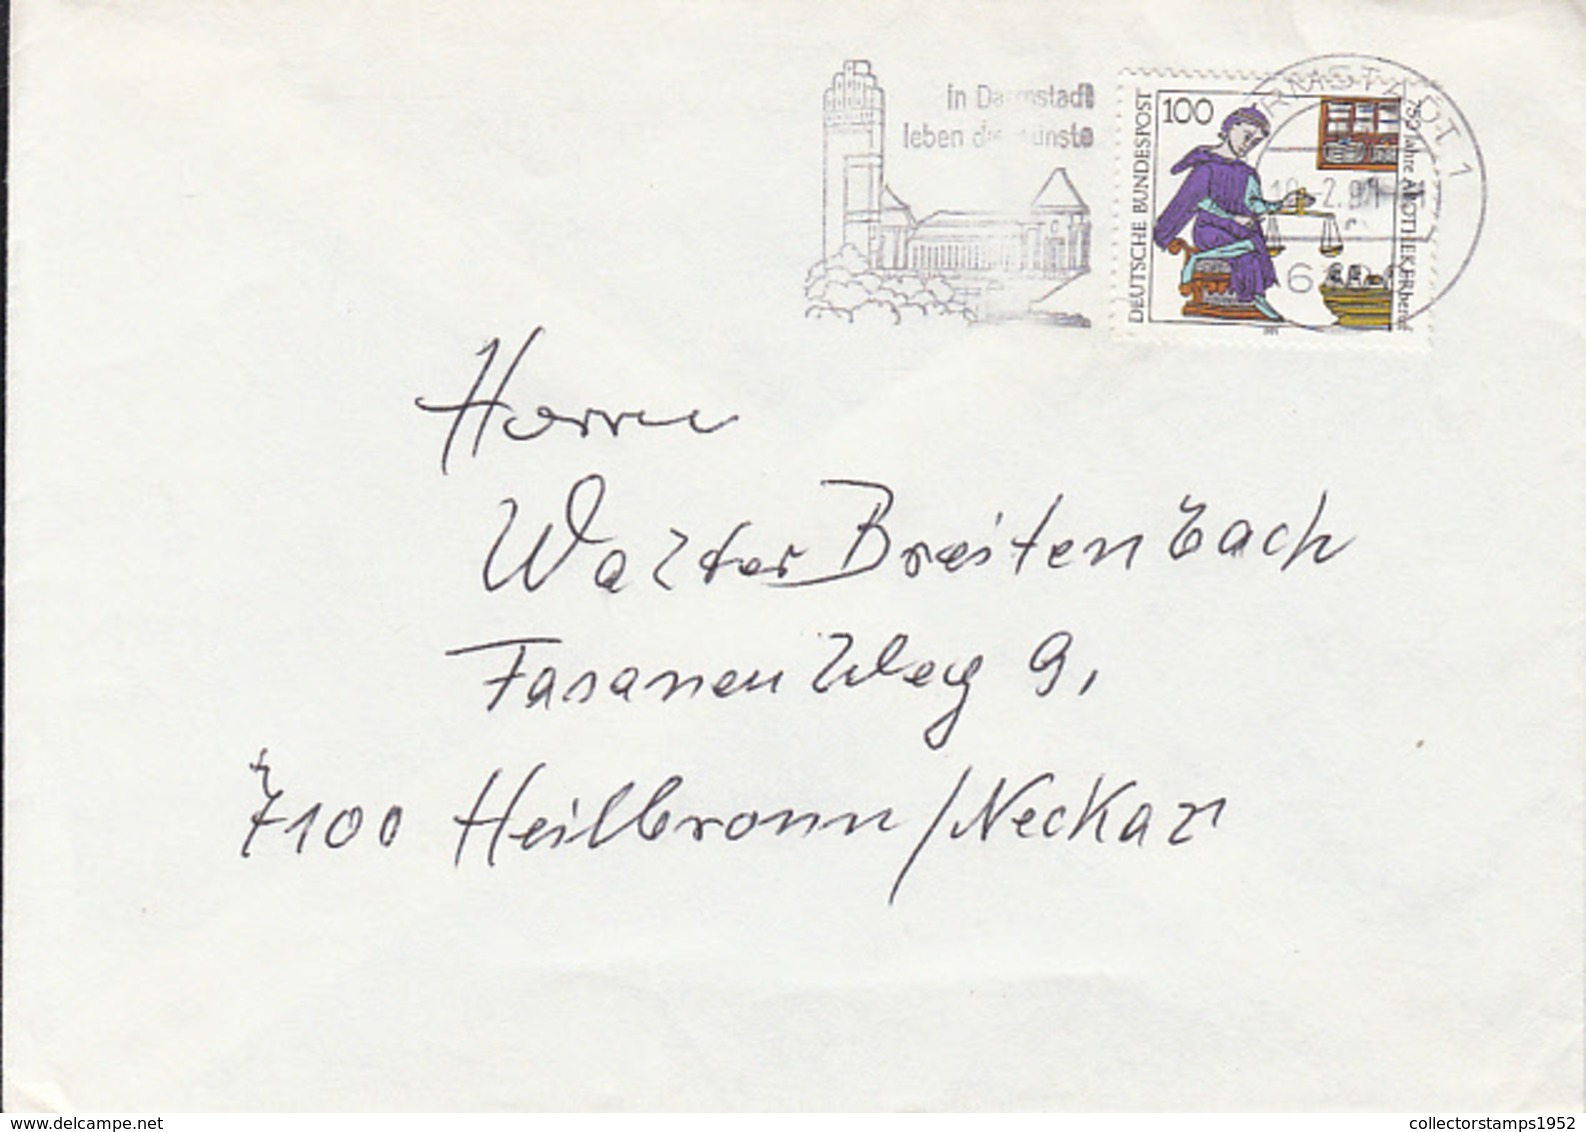 in Darmstadt
leben die Künste
DEUTSCHE BUNDESPOST
100
750 Jahre APOTHEKERberuf
DARMSTADT 1
Herrn
Walter Breitenbach
Fasanen Weg 9,
7100 Heilbronn/Neckar
www.delcampe.net
collectorstamps1952